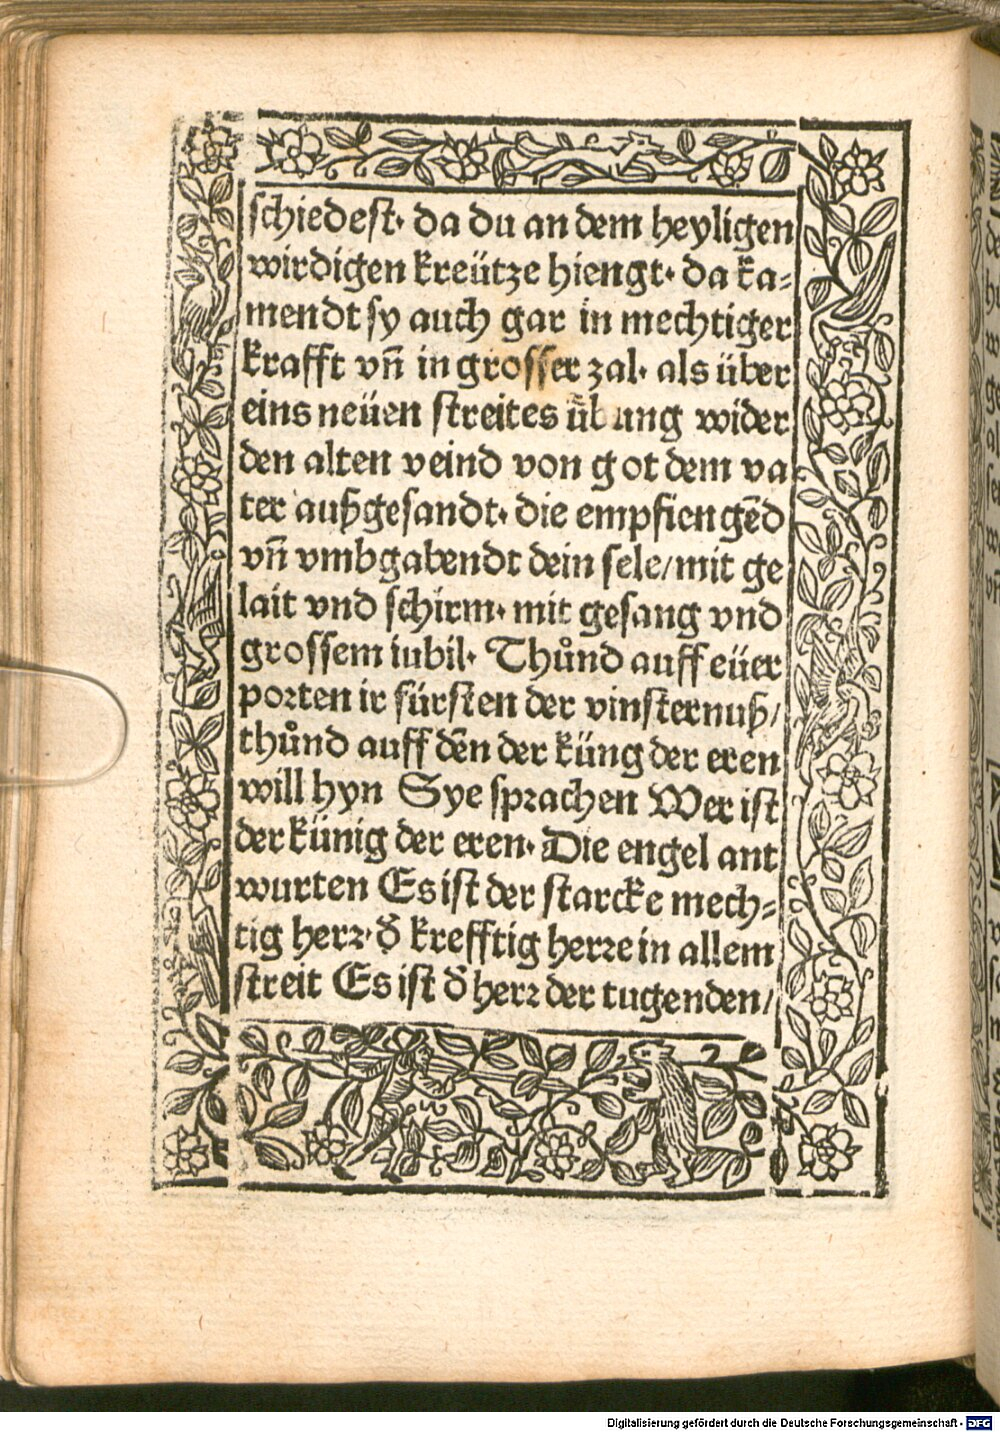 schiedest· da du an dem heyligen
wirdigen kreütze hiengt· da ka-
mendt sy auch gar in mechtiger
krafft vn̄ in grosser zal· als über
eins neüen streites ǖbung wider
den alten veind von got dem va
ter außgesandt· die empfiengēd
vn̄ vmbgabendt dein sele/mit ge
lait vnd schirm· mit gesang vnd
grossem iubil· Thůnd auff eüer
porten ir fürsten der vinsternuß/
thůnd auff dēn der küng der eren
will hyn Sye sprachen Wer ist
der künig der eren· Die engel ant
wurten Es ist der starcke mech-
tig herr· d̄ krefftig herre in allem
streit Es ist d̄ herr der tugenden/
Digitalisierung gefördert durch die Deutsche Forschungsgemeinschaft - DFG